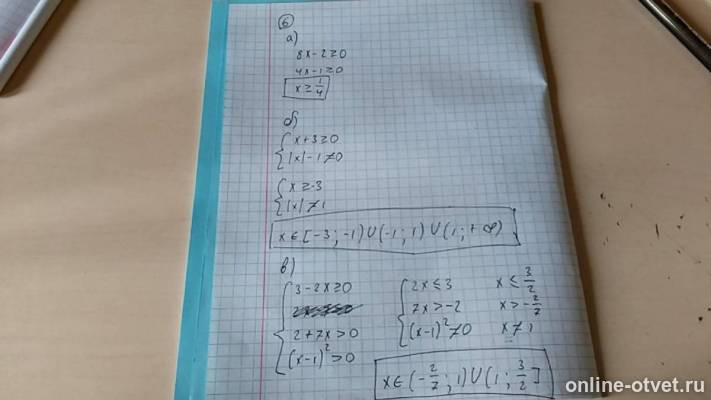 6
а)
8x-2≥0
4x-1≥0
x≥1/4
б)
{x+3≥0
{|x|-1≠0
{x≥-3
{|x|≠1
x∈[-3;-1)∪(-1;1)∪(1;+∞)
в)
{3-2x≥0 {2x≤3 x≤3/2
2+7x>0 7x>-2 x>-2/7
(x-1)²>0 (x-1)²≠0 x≠1
x∈(-2/7;1)∪(1;3/2]
online-otvet.ru